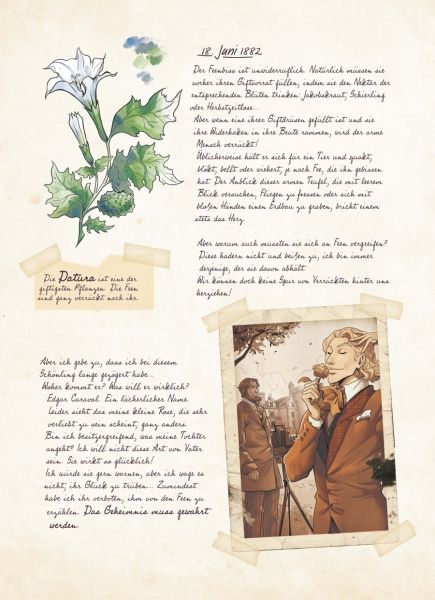 18. Juni 1882
Der Feenbiss ist unwiderruflich. Natürlich müssen sie
vorher ihren Giftvorrat füllen, indem sie den Nektar der
entsprechenden Blüten trinken: Jakobskraut, Schierling
oder Herbstzeitlose...
Aber wenn eine ihrer Giftdrüsen gefüllt ist und sie
ihre Widerhaken in ihre Beute rammen, wird der arme
Mensch verrückt!
Üblicherweise hält er sich für ein Tier und quakt,
blökt, bellt oder wiehert, je nach Fee, die ihn gebissen
hat. Der Anblick dieser armen Teufel, die mit leerem
Blick versuchen, Fliegen zu fressen oder sich mit
bloßen Händen einen Erdbau zu graben, bricht einem
stets das Herz.
Aber warum auch mussten sie sich an Feen vergreifen?
Diese hadern nicht und beißen zu, ich bin immer
derjenige, der sie davon abhält.
Wir können doch keine Spur von Verrückten hinter uns
herziehen!
Die Datura ist eine der
giftigsten Pflanzen. Die Feen
sind ganz verrückt nach ihr.
Aber ich gebe zu, dass ich bei diesem
Schönling lange gezögert habe...
Woher kommt er? Was will er wirklich?
Edgar Caraval. Ein lächerlicher Name.
Leider sieht das meine kleine Rose, die sehr
verliebt zu sein scheint, ganz anders.
Bin ich besitzergreifend, was meine Tochter
angeht? Ich will nicht diese Art von Vater
sein. Sie wirkt so glücklich!
Ich würde sie gern warnen, aber ich wage es
nicht, ihr Glück zu trüben... Zumindest
habe ich ihr verboten, ihm von den Feen zu
erzählen. Das Geheimnis muss gewahrt
werden.